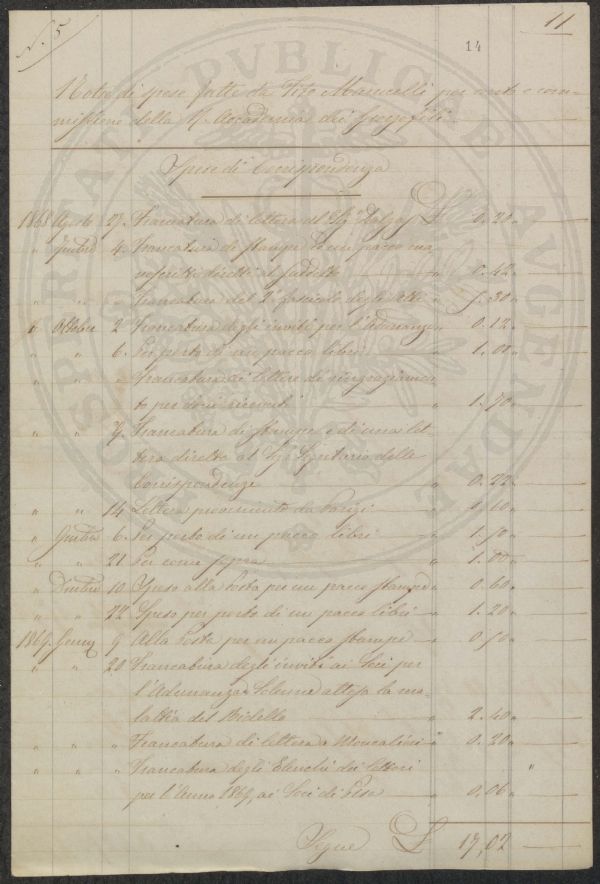 N. 5
11
14
Nota di spese fatte da Tito Marucelli per conto e com-
missione della R. Accademia dei Georgofili
Spese di Corrispondenza
1868 Agosto 27. Francatura di lettera al Sig. £ 0.20
" 4. Francatura di stampe e un pacco ma-
noscritti diretti al suddetto " 0.42
" " " Francatura del 2° fascicolo degli Atti " 5.30
" Ottobre 2 Francatura degli inviti per l'Adunanza " 0.12
" " 6. Per porto di un pacco libri " 1.00
" " " Francatura di lettere di ringraziamen-
to per doni ricevuti " 1.70
" " Francatura di stampe e di una let-
tera diretta al Sig. Segretario delle
Corrispondenze " 0.22
" " 14 Lettera proveniente da Parigi " 1.60
" 6. Per porto di un pacco libri " 1.50
" " 21 Per come sopra " 1.00
" Dicembre 10 Spese alla Posta per un pacco stampe " 0.60
" " 22 Spese per porto di un pacco libri " 1.20
1869. Genn. 9 Alla Posta per un pacco stampe " 0.50
" " 20 Francatura degli inviti ai Soci per
l'Adunanza Solenne attesa la ma-
lattia del Bidello " 2.40
" " " Francatura di lettera a Moncalieri " 0.20
" " " Francatura degli Elenchi dei lettori
per l'Anno 1869, ai Soci di Pisa " 0.06
Segue £ 17,02
PROSPERITATI PVBLICAE AVGENDAE